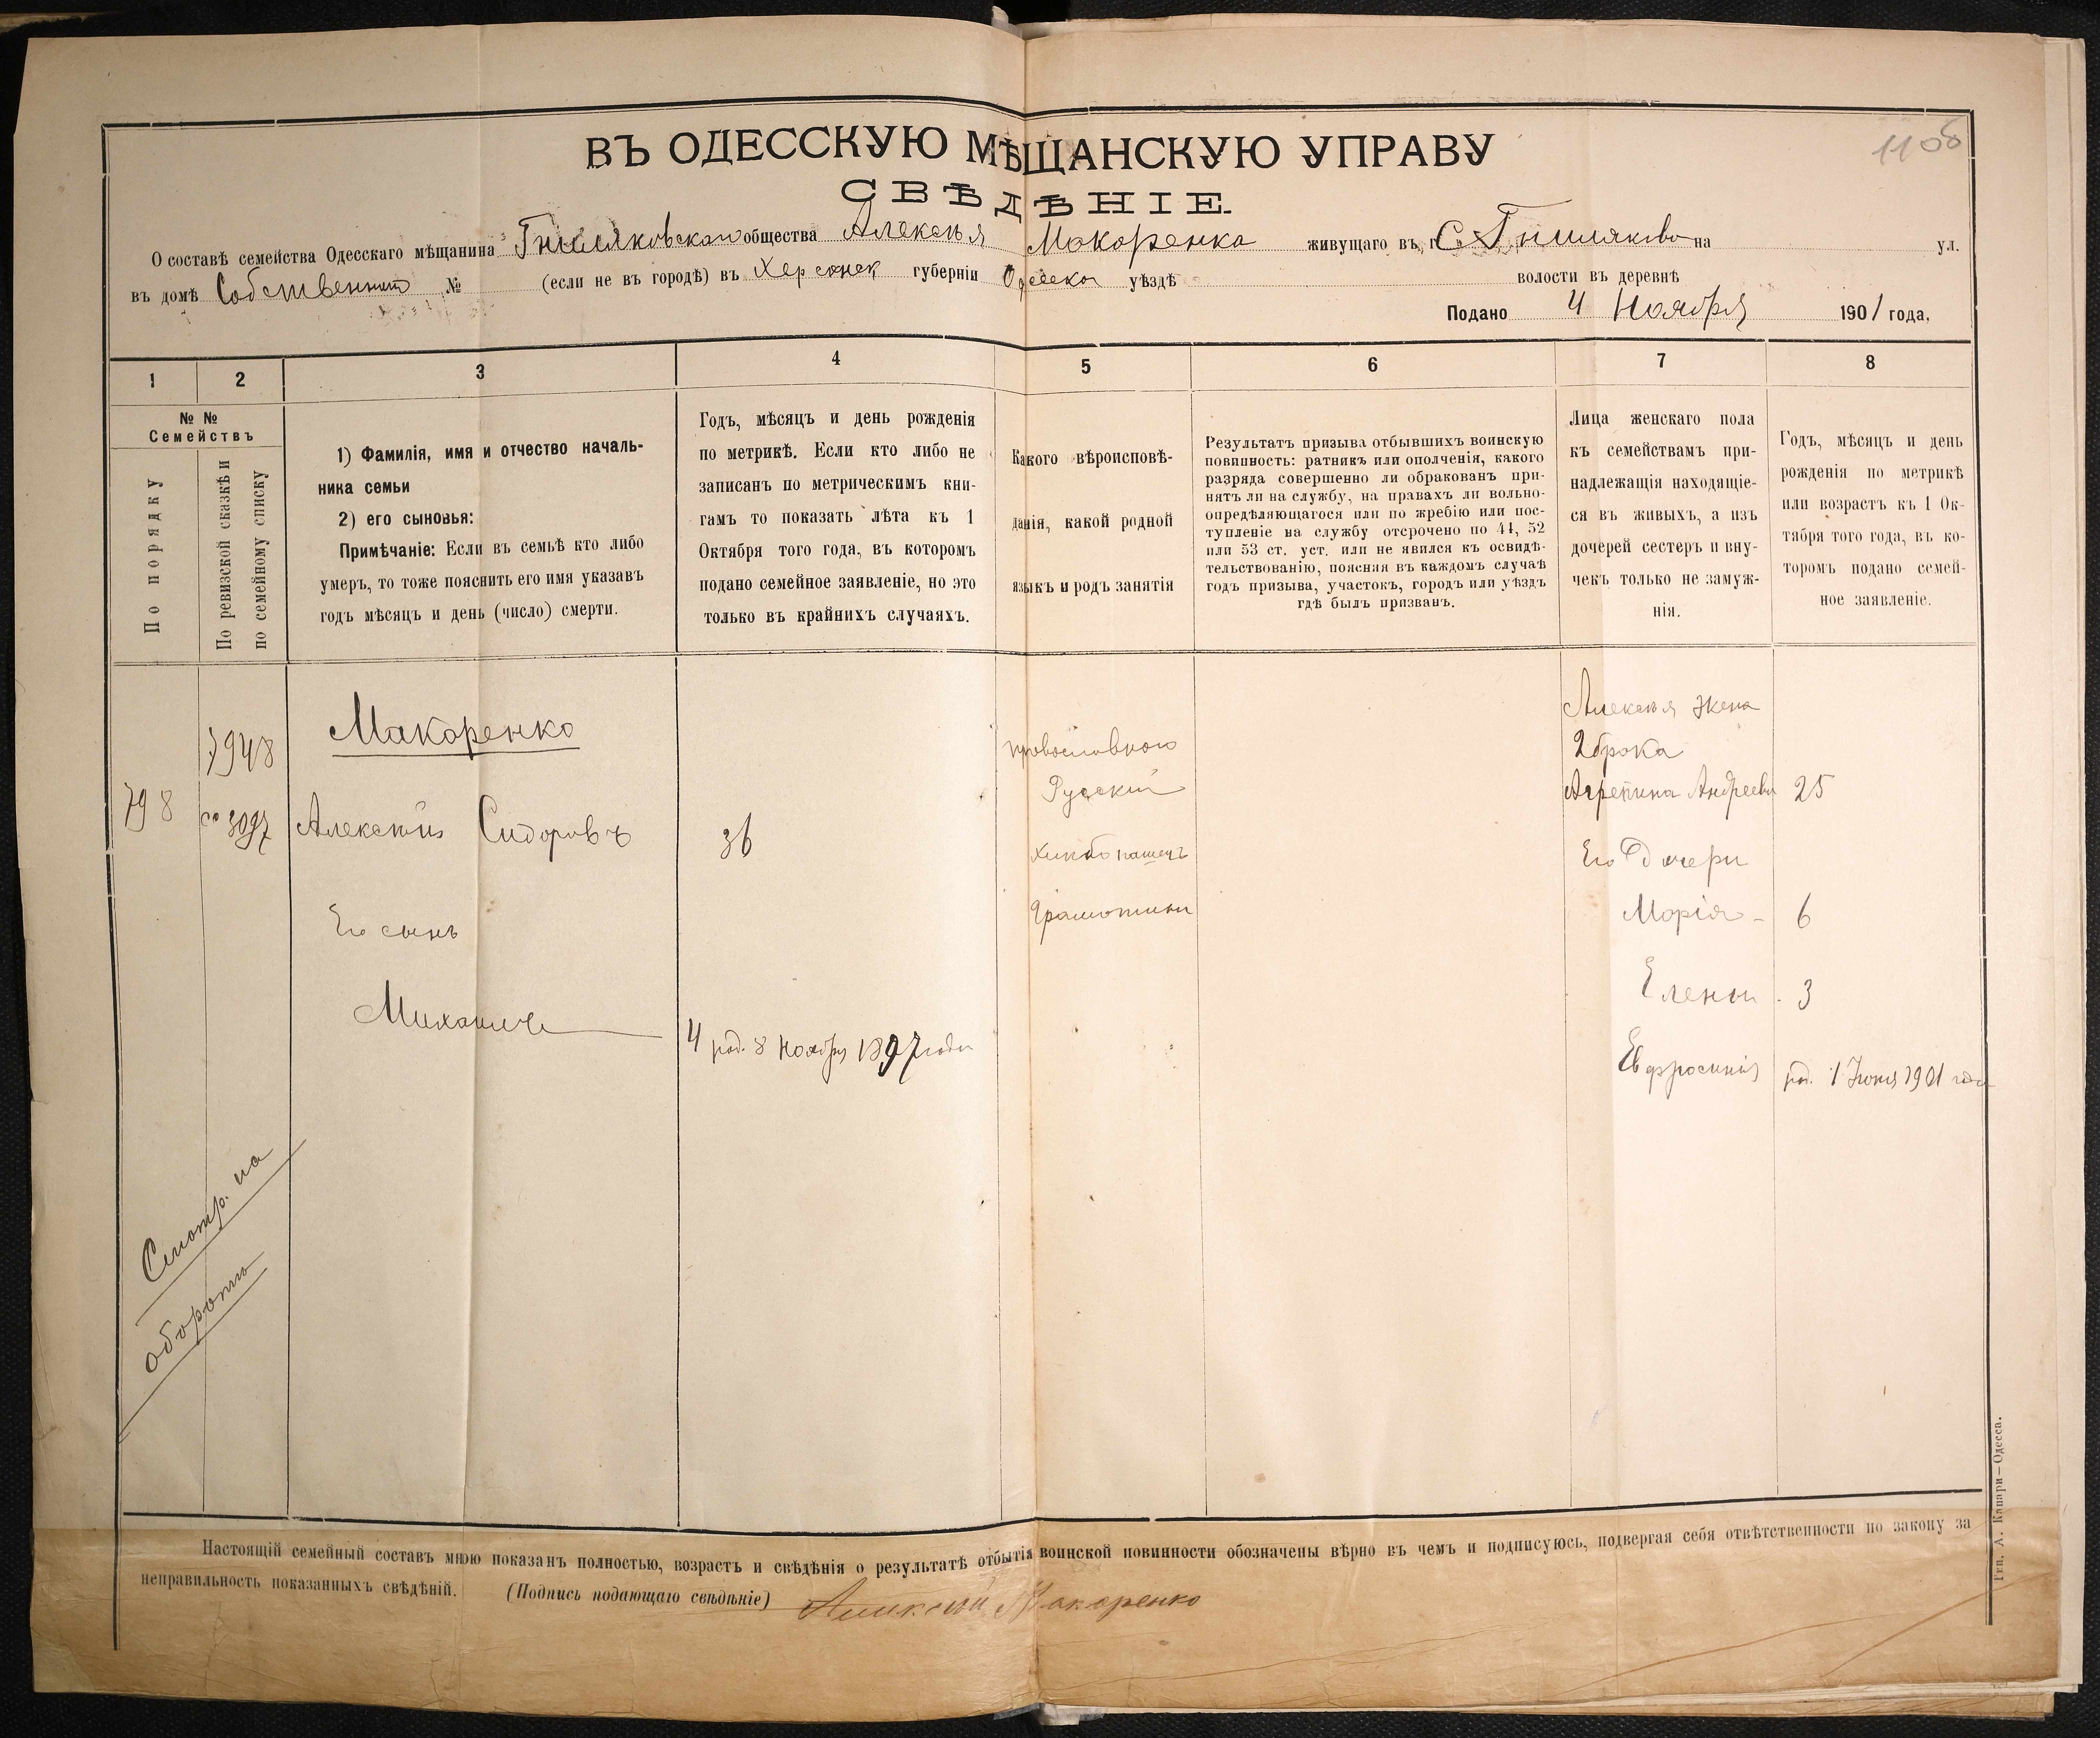 1108
ВЪ ОДЕССКУЮ МѢЩАНСКУЮ УПРАВУ
СВѢДѢНІЕ.
О составѣ семейства Одесскаго мѣщанина Гниляковскаго общества Алексѣя Макаренка живущаго въ г. С. Гниляково на ул.
въ домѣ Собственном № (если не въ городѣ) въ Херсонск губерніи Одесско уѣздѣ волости въ деревнѣ
Подано 4 Ноября 1901 года,
1 2 3 4 5 6 7 8
№ №
Семействъ
По порядку
По ревизской сказкѣ и
по семейному списку
1) Фамилія, имя и отчество началь-
ника семьи
2) его сыновья:
Примѣчаніе: Если въ семьѣ кто либо
умеръ, то тоже пояснить его имя указавъ
годъ мѣсяцъ и день (число) смерти.
Годъ, мѣсяцъ и день рожденія
по метрикѣ. Если кто либо не
записанъ по метрическимъ кни-
гамъ то показать лѣта къ 1
Октября того года, въ которомъ
подано семейное заявленіе, но это
только въ крайнихъ случаяхъ.
Какого вѣроисповѣ-
данія, какой родной
языкъ и родъ занятія
Результатъ призыва отбывшихъ воинскую
повинность: ратникъ или ополченія, какого
разряда совершенно ли обракованъ при-
нятъ ли на службу, на правахъ ли вольно-
опредѣляющагося или по жребію или пос-
тупленіе на службу отсрочено по 44, 52
или 53 ст. уст. или не явился къ освидѣ-
тельствованію, поясняя въ каждомъ случаѣ
годъ призыва, участокъ, городъ или уѣздъ
гдѣ былъ призванъ.
Лица женскаго пола
къ семействамъ при-
надлежащія находящіе-
ся въ живыхъ, а изъ
дочерей сестеръ и вну-
чекъ только не замуж-
нія.
Годъ, мѣсяцъ и день
рожденія по метрикѣ
или возрастъ къ 1 Ок-
тября того года, въ ко-
торомъ подано семей-
ное заявленіе.
798
Макаренко
Алексѣй Сидоровъ
36
Его сынъ
Михаилъ
4 род. 8 Ноября 1897 года
православного
Русскій
хлѣбопашецъ
Грамотный
Алексѣя жена
2 брака
Агрепина Андреева 25
Его дочери
Марія - 6
Елены 3
Евфросинія род. 1 Іюня 1901 года
Смотр. на
оборотѣ
Настоящій семейный составъ мною показанъ полностью, возрастъ и свѣдѣнія о результатѣ отбытія воинской повинности обозначены вѣрно въ чемъ и подписуюсь, подвергая себя отвѣтственности по закону за
неправильность показанныхъ свѣдѣній. (Подпись подающаго свѣдѣніе) Алексѣй Макаренко
Тип. А. Капари—Одесса.